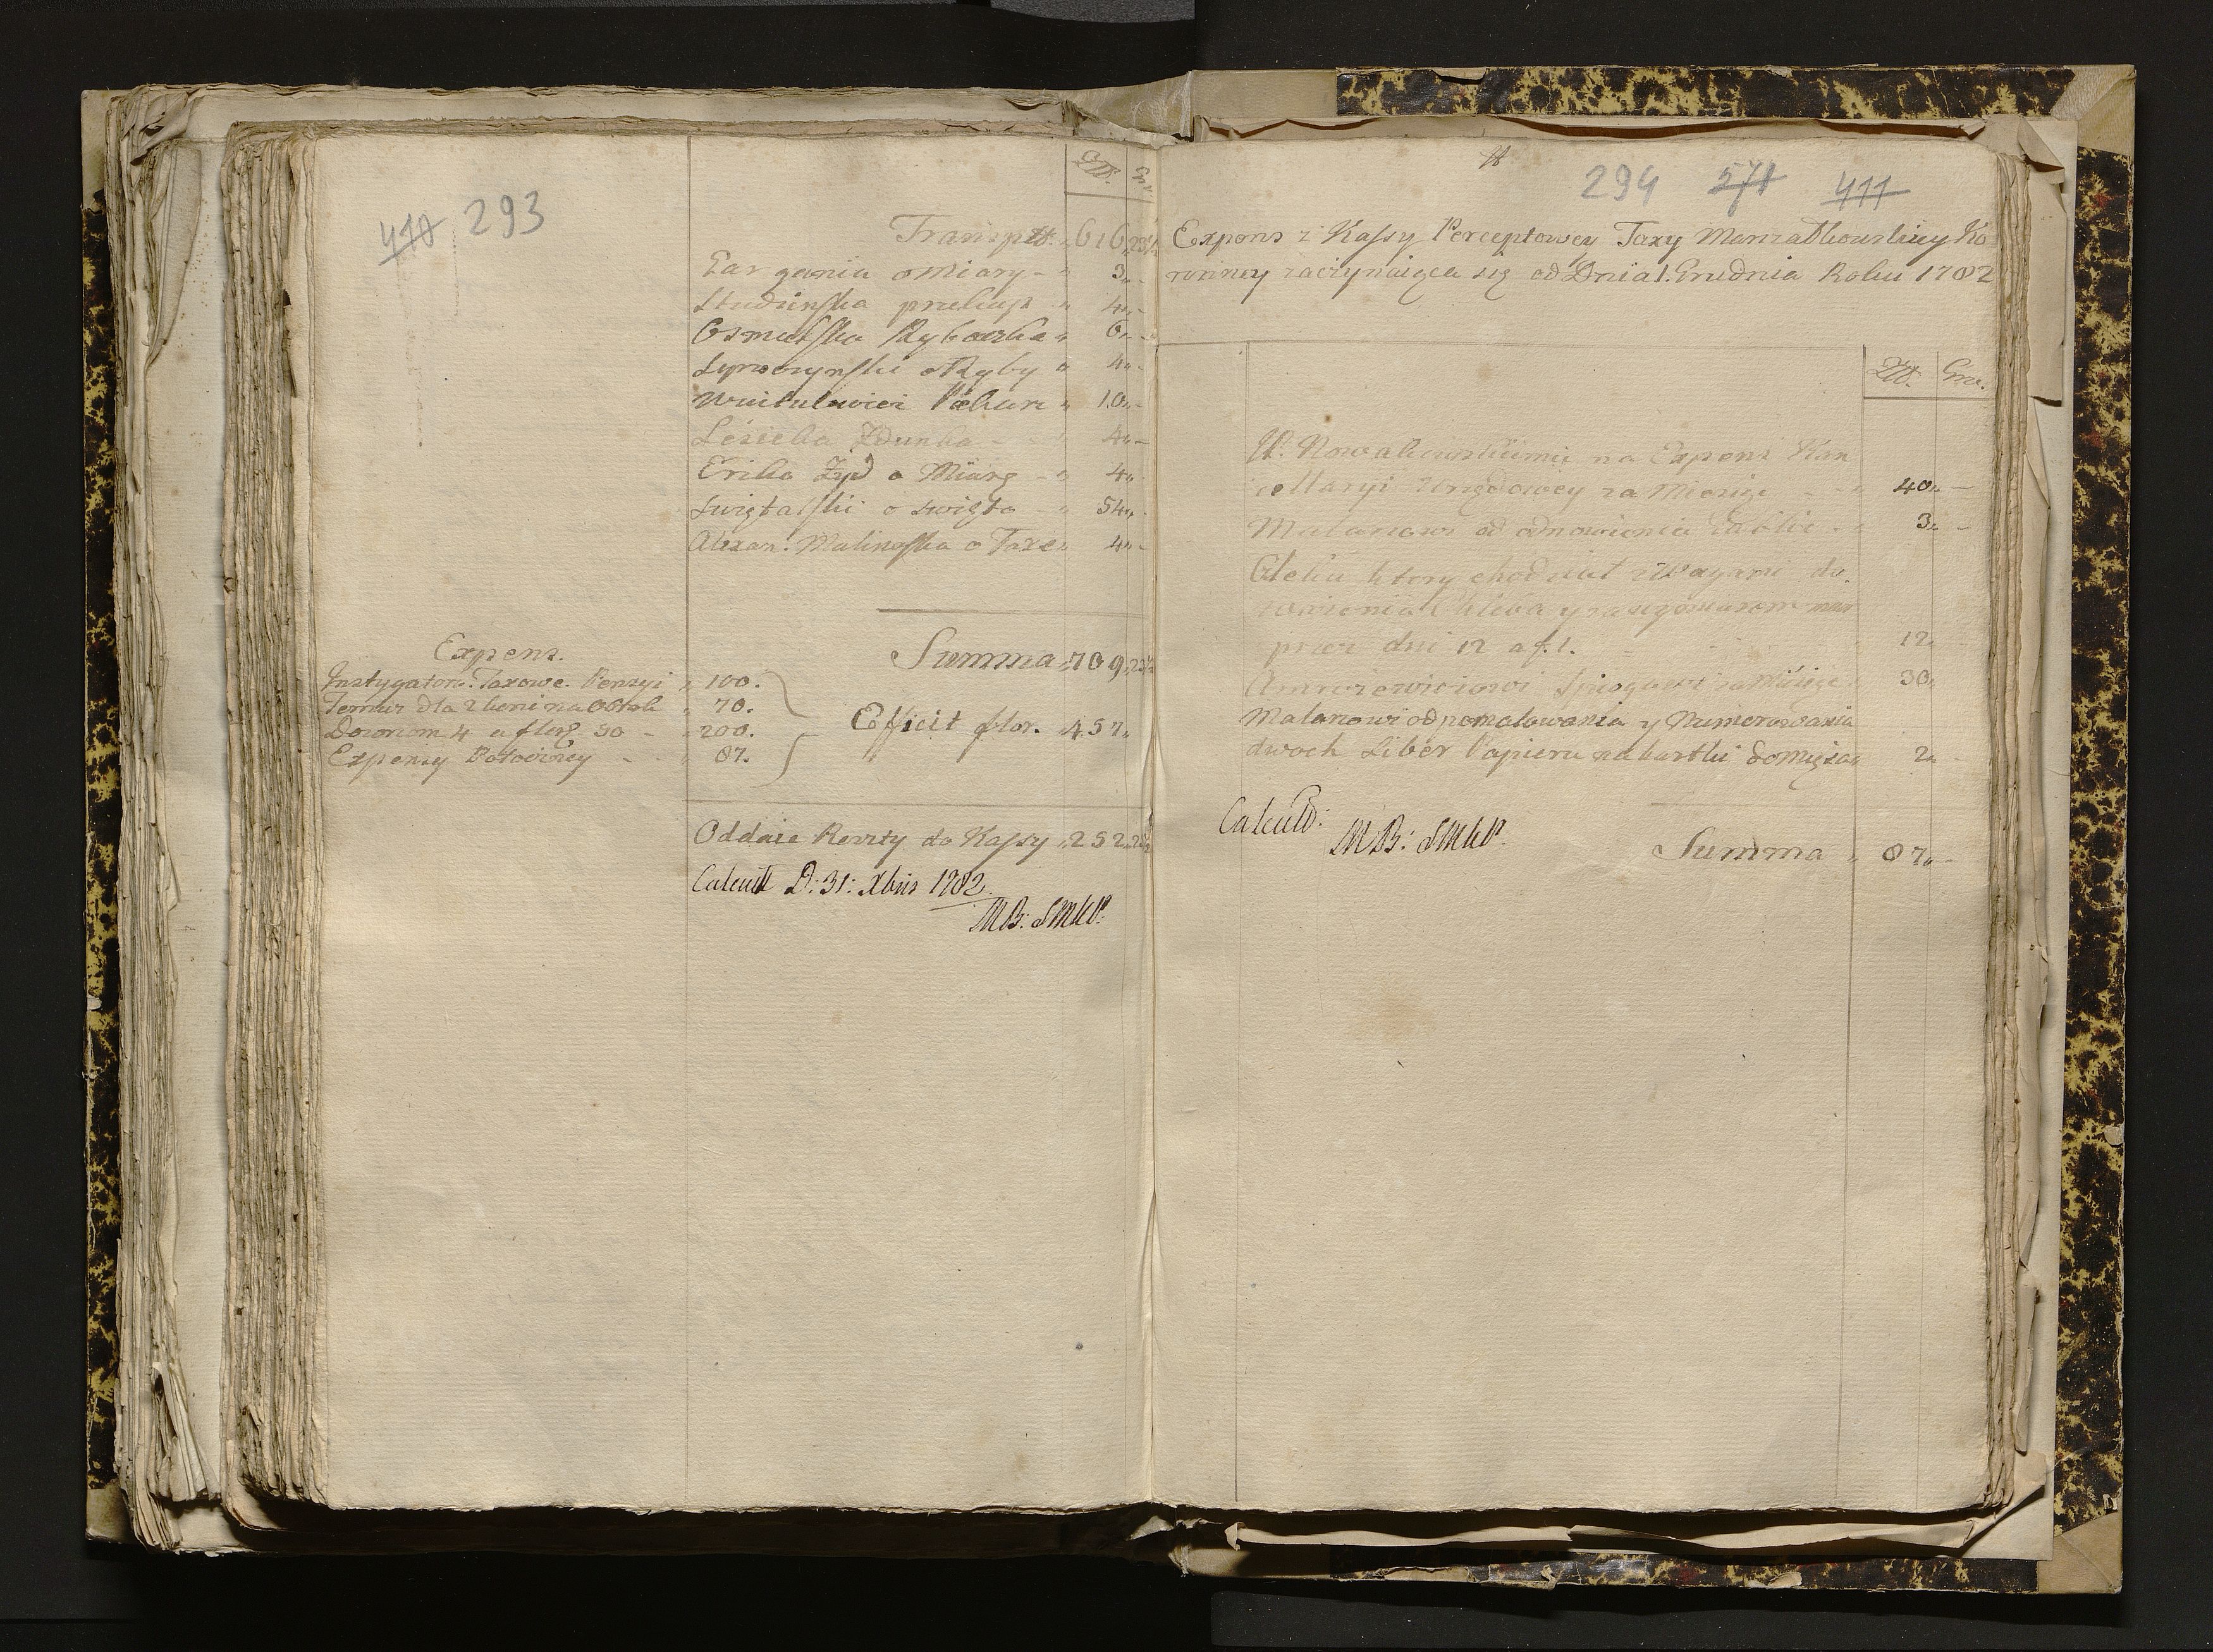 410 293
Złł. Gr.
Transptt. 616,,23½
Gargania o Miary - " 3,,-
Studzinska przekup " 4,,-
Osmulska Rybaczka " 6,,-
Lipczynski o Ryby " 4,,-
Woitulewicz Piekarz " 10,,-
Lesicka Zdunka - - " 4,,-
Erike Żyd o Miarę - " 4,,-
Swiętalski o swięto - " 54,,-
Alexan. Malinoska o Taxe " 4,,-
Summa " 709,,23½
Expens.
Instygator. Taxowe. Pensyi " 100.
Temuz dla 2 koni na Obrok " 70.
Dozorcom 4 a flor. 50 - " 200.
Expensy Potoczney - - " 87.
Efficit flor. " 457,,
Oddaie Reszty do Kassy " 252,,23½
Calcult D: 31: Xbris 1782.
MB: SMKP.
294 571 411
Expens z Kassy Perceptowey Taxy Marszałkowskiey Ko
ronney zaczynaiąca się od Dnia 1. Grudnia Roku 1782
Złł. Grr.
W. Nowakowskiemu na Expens Kan
cellaryi Urzędowey za Miesiąc - - " 40,,-
Malarzowi od odnowienia Tablic - " 3,,-
Człeku ktory chodził z Wagami do
wazenia Chleba y za szynwarem
przez dni 12 a f. 1. 12,,
Amrozewiczowi Spiegowi za Miesiąc " 30,,
Malarzowi od pomalowania y Numerowania
dwoch Liber Papieru na kartki do mięsa " 2,,-
Calculd:
MB: SMKP.
Summa " 87,,-